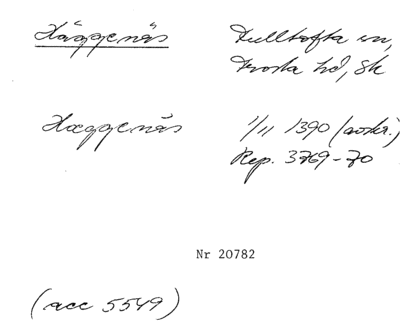 Häggenäs
Fulltofta sn,
Frosta hd, Sk
Hæggenäs
1/11 1390 (avskr.)
Rep. 3769-70
Nr 20782
(acc 5549)